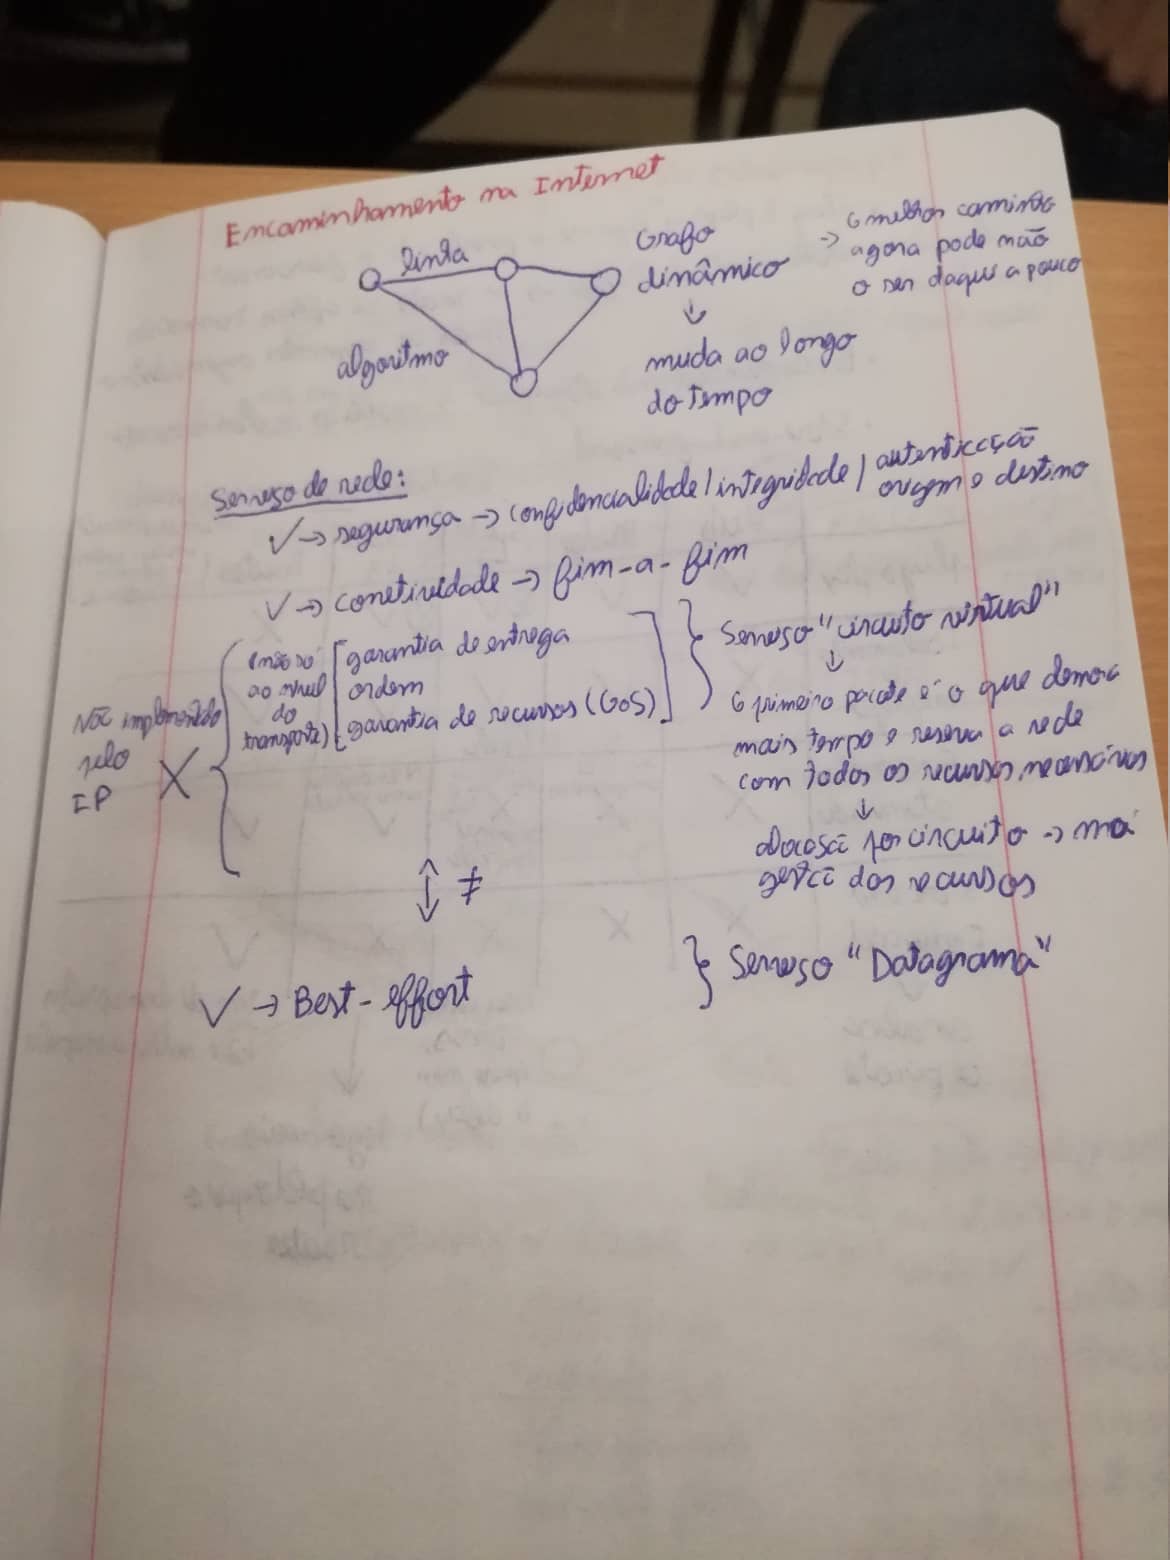 Encaminhamento na Internet
linha
algoritmo
Grafo
dinâmico
↓
muda ao longo
do tempo
→ O melhor caminho
agora pode não
o ser daqui a pouco
Serviço de rede:
✓ → segurança → confidencialidade / integridade / autenticação
origem e destino
✓ → conetividade → fim-a-fim
Não implementado
pelo
IP
X
(não só
ao nível
do
transporte)
garantia de entrega
ordem
garantia de recursos (QoS)
} Serviço "circuito virtual"
↓
O primeiro pacote é o que demora
mais tempo e reserva a rede
com todos os recursos necessários
↓
alocação por circuito → má
gestão dos recursos
↕ ≠
✓ → Best-effort
} Serviço "Datagrama"